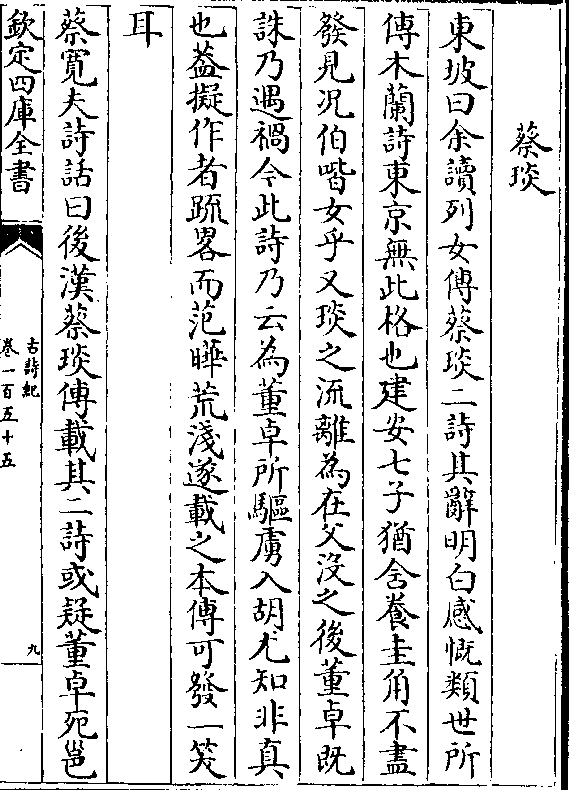 蔡琰
東坡曰余讀列女傳蔡琰二詩其辭明白感慨類世所
傳木蘭詩東京無此格也建安七子猶含養圭角不盡
發見況伯喈女乎又琰之流離為在父沒之後董卓既
誅乃遇禍今此詩乃云為董卓所驅虜入胡尤知非真
也葢擬作者疏畧而范曄荒淺遂載之本傳可發一笑
耳
蔡寛夫詩話曰後漢蔡琰傳載其二詩或疑董卓死邕
欽定四庫全書
古詩紀
卷一百五十五
九